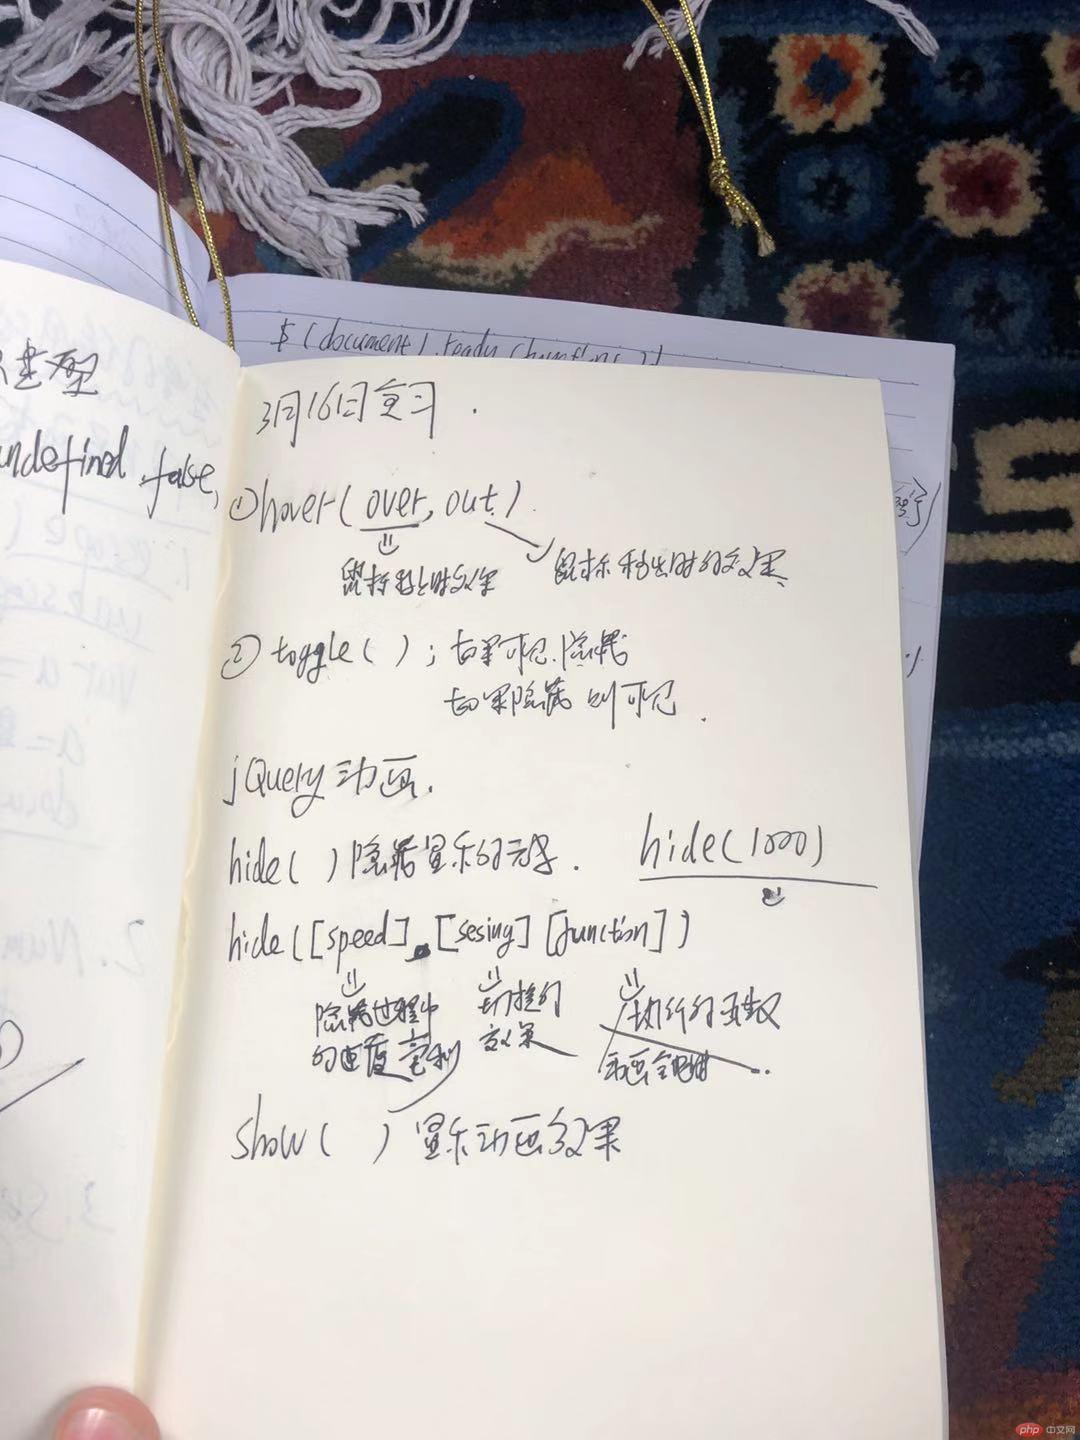 $(document).ready(function(){
类型
undefined false,
3月16日复习.
①hover(over,out)
鼠标移上时效果 鼠标移出时的效果
②toggle( ); 如果可见.隐藏
如果隐藏 则可见.
jQuery 动画.
hide( )隐藏显示的元素. hide(1000)
hide([speed],[sesing][function])
隐藏过程中 切换的 执行的函数
的速度 毫秒 效果 动画全
show( ) 显示动画效果
php 中文网